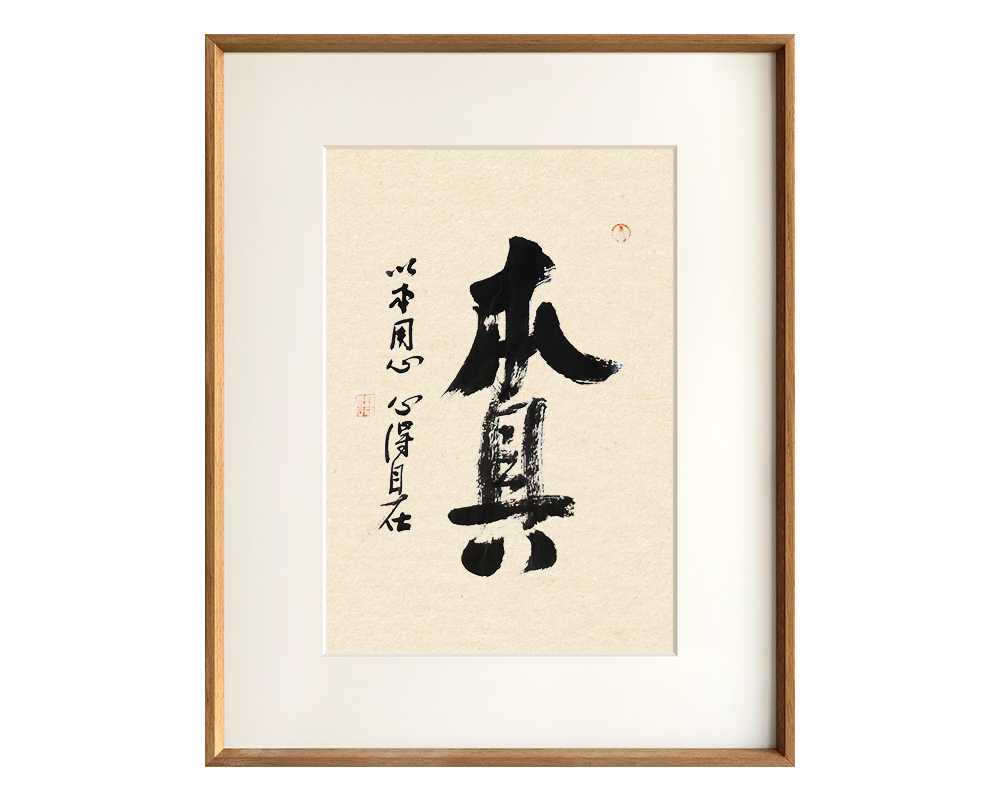 本真
以本用心 心得自在